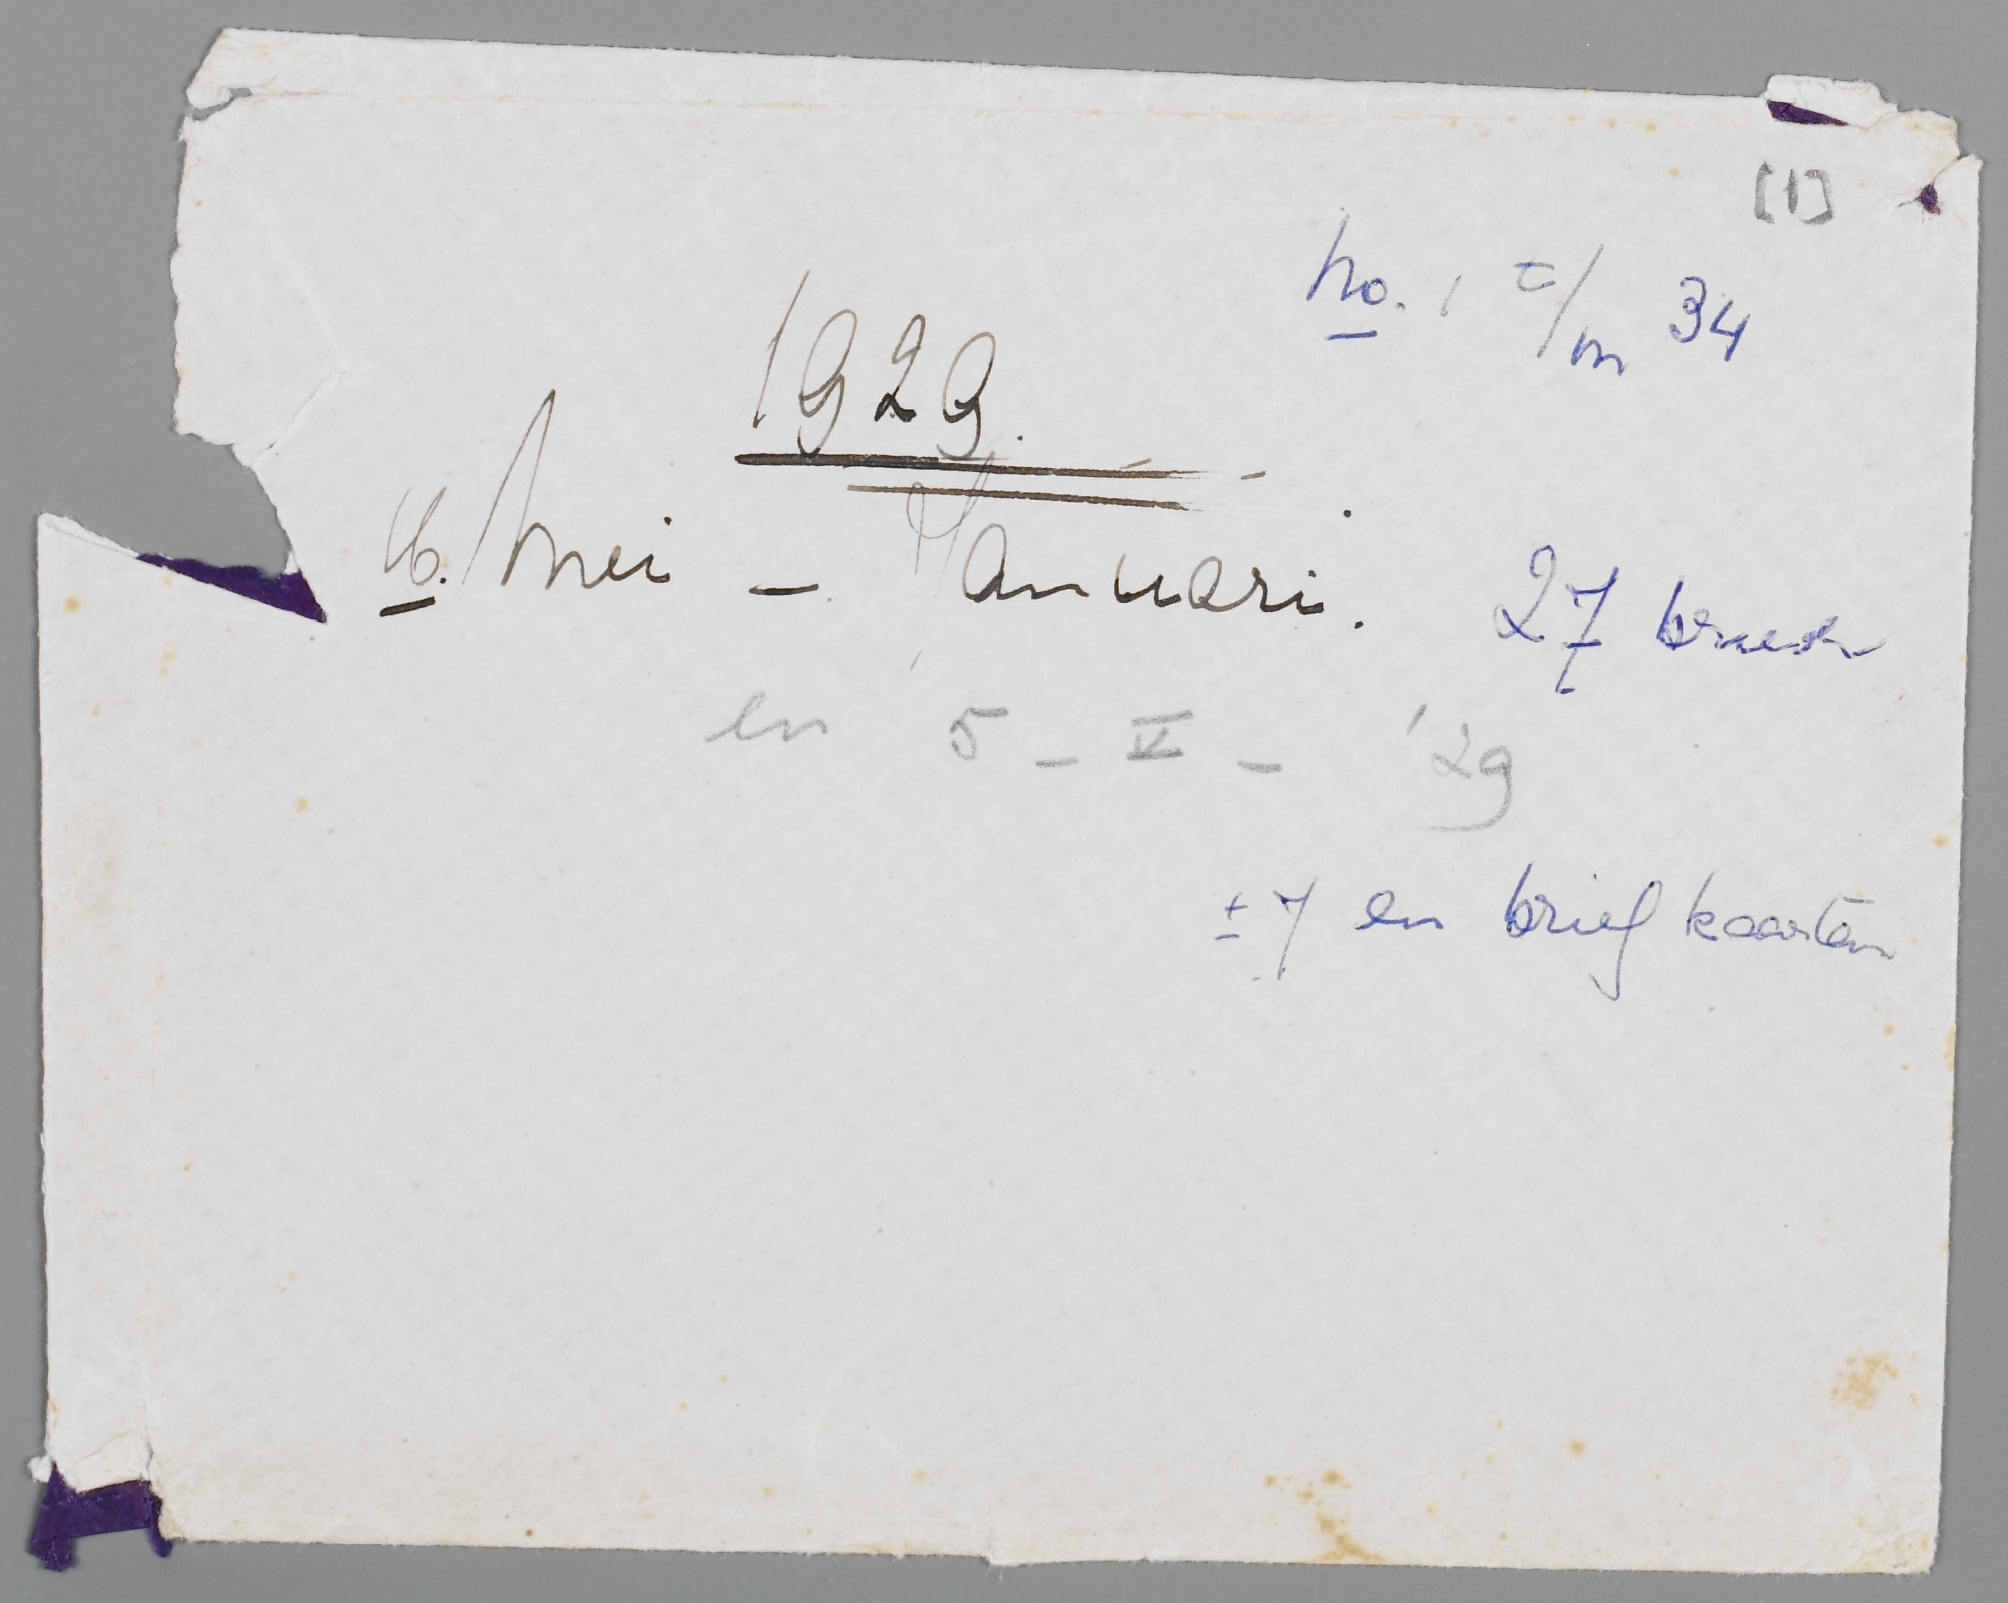 [1]
no. 1 t/m 34
1929.
16. Mei - Januari.
27 brieven
en 5 - V - '29
± 7 en briefkaarten